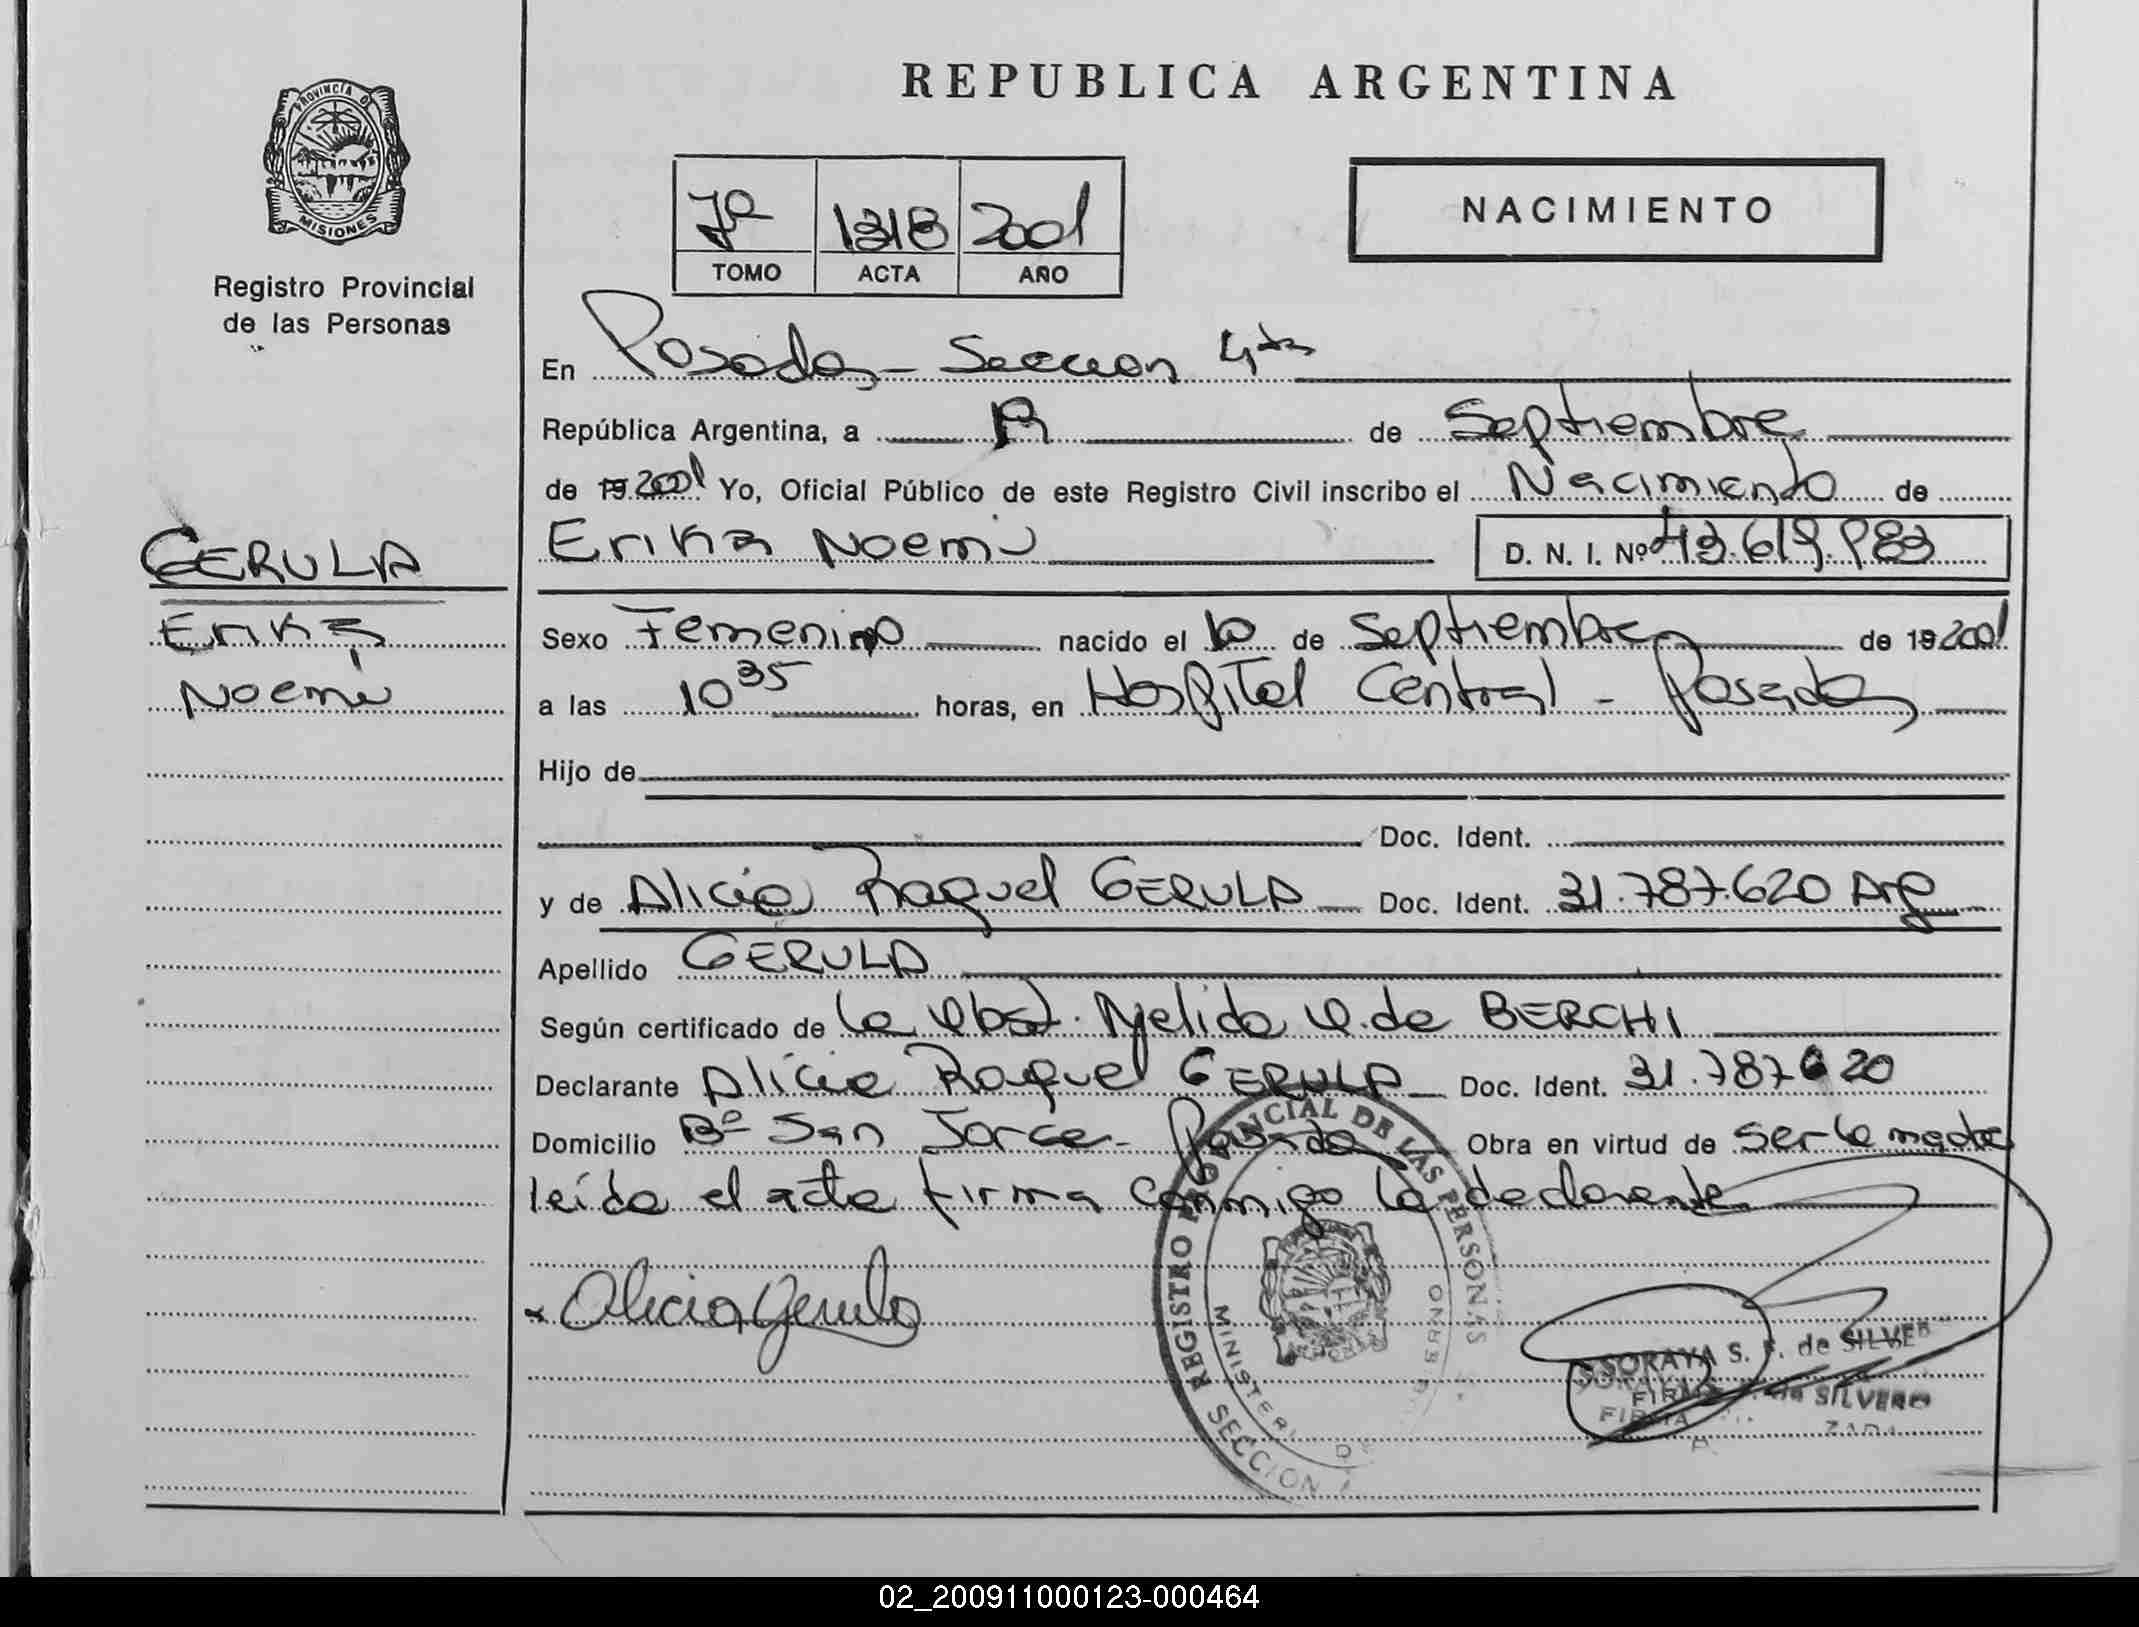 REPUBLICA ARGENTINA
PROVINCIA DE
MISIONES
Registro Provincial
de las Personas
7º 1318 2001
TOMO ACTA AÑO
NACIMIENTO
En Posadas - Seccion 4ta
República Argentina, a de Septiembre
de 19 2001 Yo, Oficial Público de este Registro Civil inscribo el Nacimiento de
Erika Noemi D. N. I. Nº 43.619.983
GERULA
Erika
Noemi
Sexo Femenino nacido el 10 de Septiembre de 19 2001
a las 10 35 horas, en Hospital Central - Posadas
Hijo de
Doc. Ident.
y de Alicia Raquel GERULA Doc. Ident. 31.787.620 Arg
Apellido GERULA
Según certificado de la Obst. Nelida de BERCHI
Declarante Alicia Raquel GERULA Doc. Ident. 31.787620
Domicilio Bº San Jorge - Posadas Obra en virtud de ser la madre
leída el acta firma conmigo la declarante
Alicia Gerula
REGISTRO PROVINCIAL DE LAS PERSONAS
SECCION
SORAYA S. F. de SILVE
FIRMA
de SILVERO
FIRMA
02_200911000123-000464